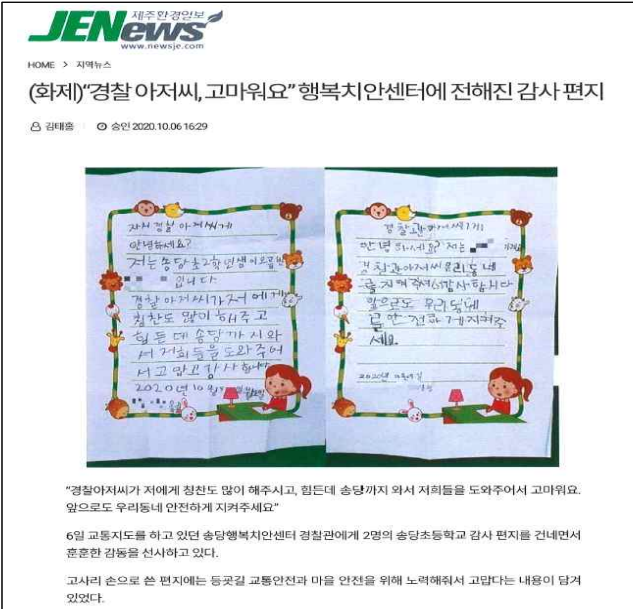 JENews
제주환경일보
www.newsje.com
HOME > 지역뉴스
(화제)“경찰 아저씨, 고마워요” 행복치안센터에 전해진 감사 편지
김태홍 승인 2020.10.06 16:29
자치경찰 아저씨께
안녕하세요?
저는 송당초2학년생
입니다
경찰 아저씨가 저에게
칭찬도 많이 해주고
힘든데 송당까지 와
서 저희들을 도와주어
서 고맙고 감사합니다
2020년 10월
경찰관아저씨께
안녕하세요? 저는
경찰관아저씨 우리동네
를 지켜주셔서 감사합니다
앞으로도 우리동네
를 안전하게 지켜주
세요.
2020년
“경찰아저씨가 저에게 칭찬도 많이 해주시고, 힘든데 송당까지 와서 저희들을 도와주어서 고마워요.
앞으로도 우리동네 안전하게 지켜주세요”
6일 교통지도를 하고 있던 송당행복치안센터 경찰관에게 2명의 송당초등학교 감사 편지를 건네면서
훈훈한 감동을 선사하고 있다.
고사리 손으로 쓴 편지에는 등굣길 교통안전과 마을 안전을 위해 노력해줘서 고맙다는 내용이 담겨
있었다.